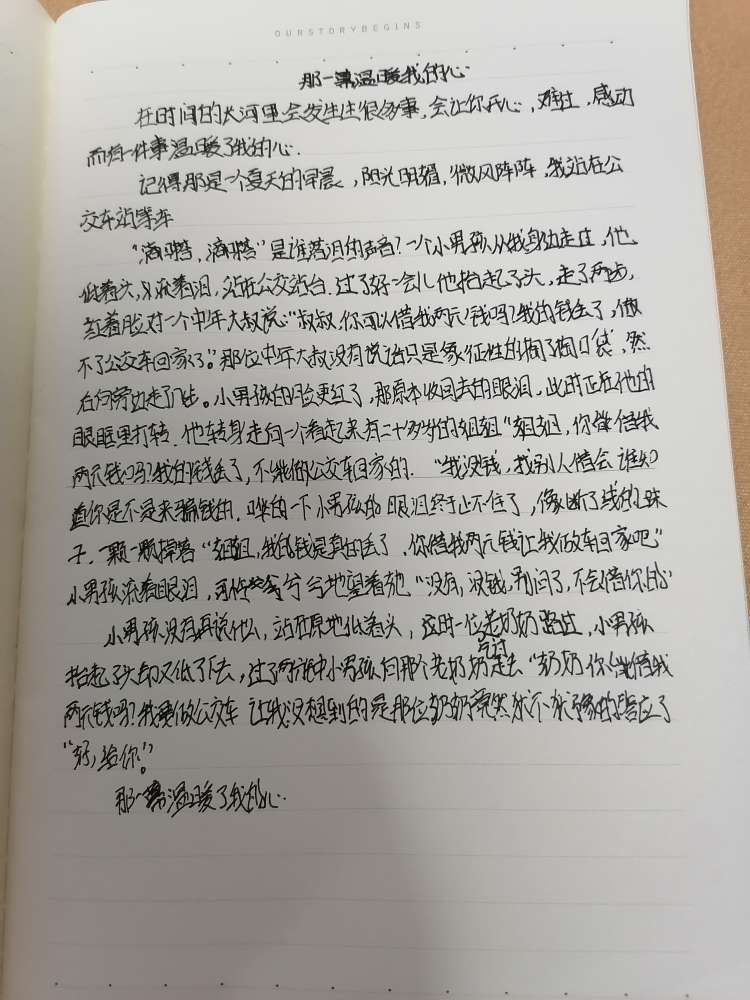 OURSTORYBEGINS
那一幕温暖我的心
在时间的大河里会发生过很多事，会让你开心，难过，感动
而有一件事温暖了我的心.
记得那是一个夏天的早晨，阳光明媚，微风阵阵，我站在公
交车站等车
“滴嗒，滴嗒”是谁落泪的声音？一个小男孩从我身边走过，他
低着头，流着泪，站在公交站台.过了好一会儿他抬起了头，走了两步，
红着脸对一个中年大叔说：“叔叔，你可以借我两元钱吗？我的钱丢了，做
不了公交车回家了。”那位中年大叔没有说话只是象征性的掏了掏口袋，然
后向旁边走了几步。小男孩的脸更红了，那原本收回去的眼泪，此时正在他的
眼眶里打转.他转身走向一个看起来有二十岁的姐姐“姐姐，你能借我
两元钱吗？我的钱丢了，不能做公交车回家的.“我没钱，找别人借会 谁知
道你是不是来骗钱的.哗的一下小男孩的眼泪终于止不住了，像断了线的珠
子.一颗一颗掉落“姐姐，我的钱是真的丢了.你借我两元钱让我做车回家吧”
小男孩流着眼泪，可怜兮兮地望着她“没有，没钱，别问了，不会借你的”
小男孩没有再说什么，站在原地低着头，这时一位老奶奶路过，小男孩
抬起了头却又低了下去，过了两分钟小男孩向那个老奶奶走去“奶奶你能借我
两元钱吗？我要做公交车 让我没想到的是那位奶奶竟然毫不犹豫的答应了
“好，给你。”
那一幕温暖了我的心.